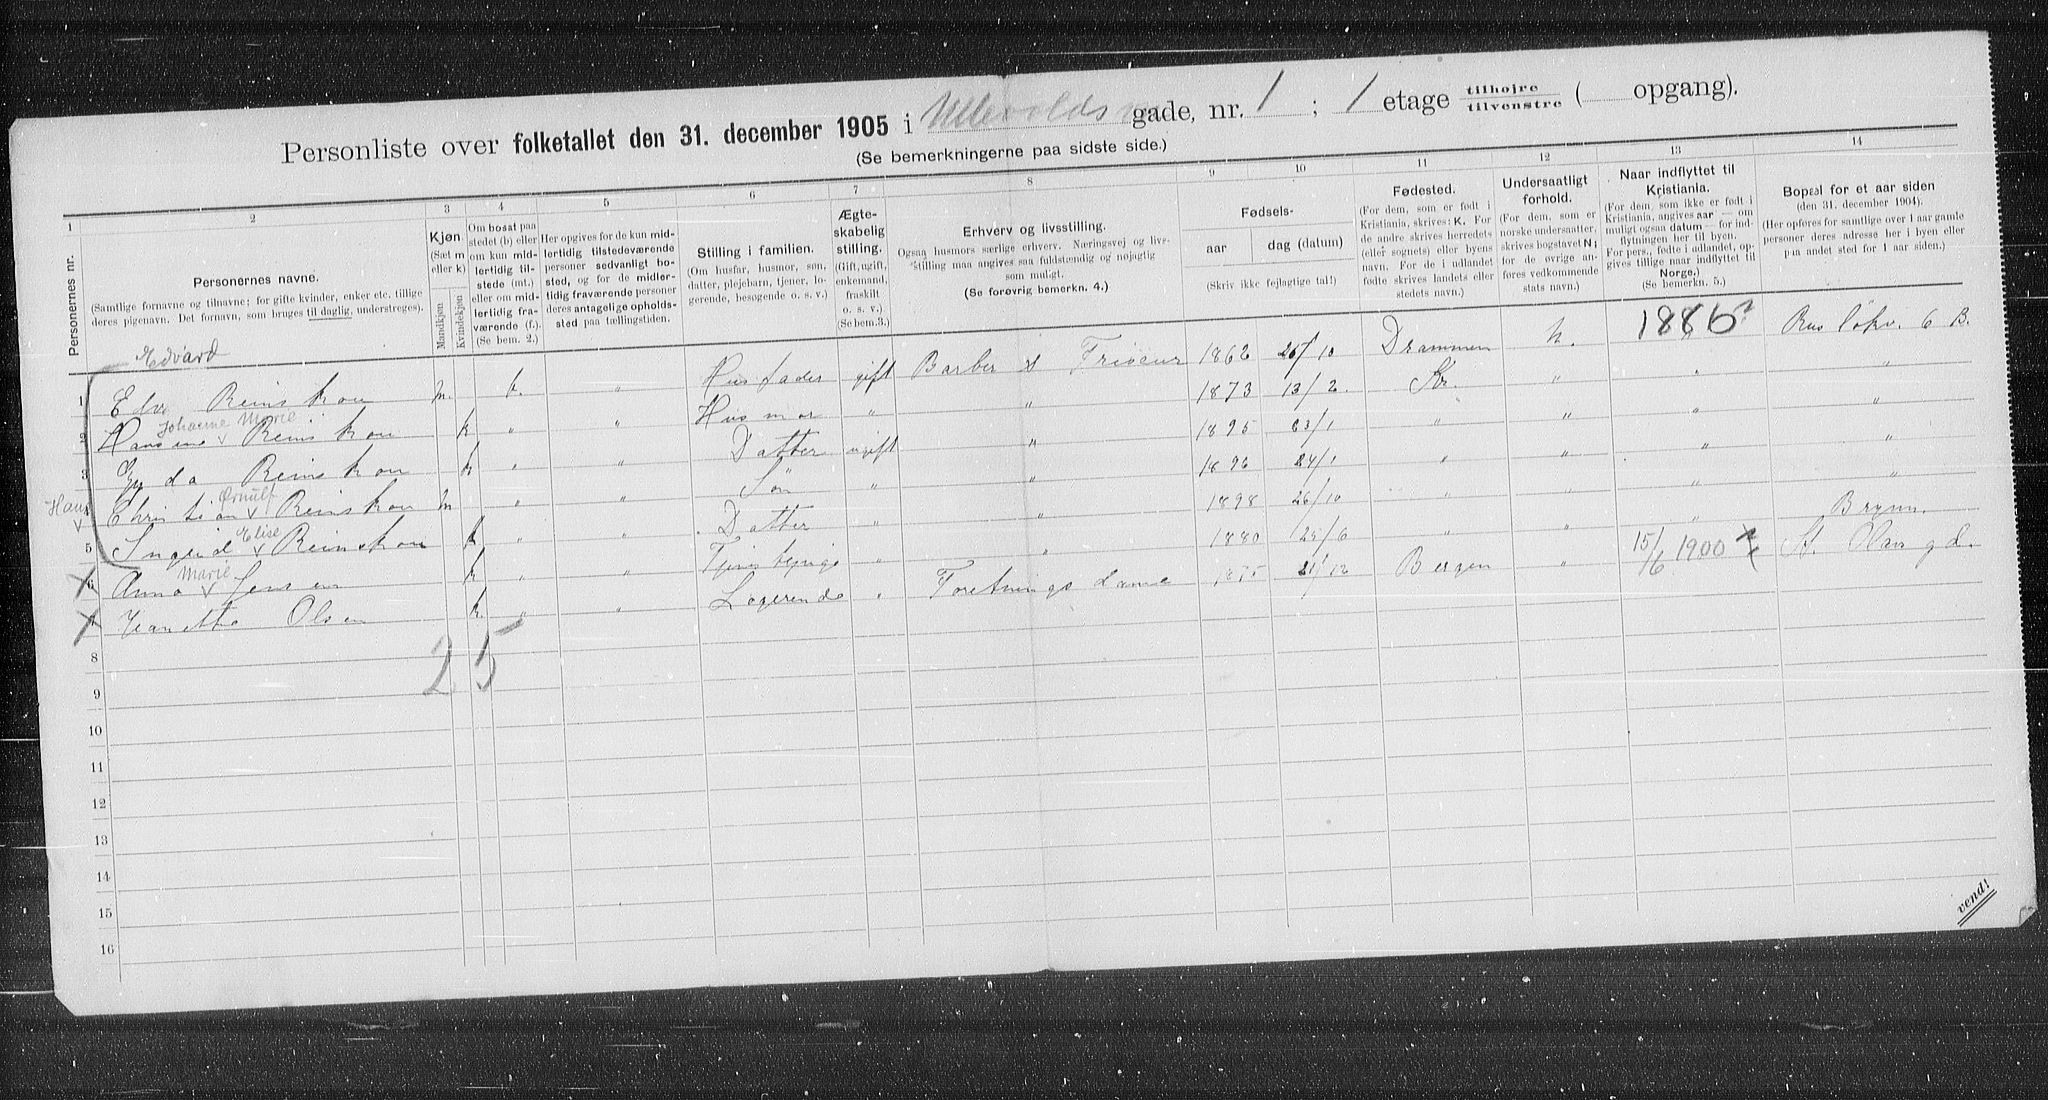 Personliste over folketallet den 31. december 1905 i Ullevolds gade, nr. 1 ; 1 etage tilhøjre tilvenstre ( opgang).
(Se bemerkningerne paa sidste side.)
1 2 3 4 5 6 7 8 9 10 11 12 13 14
Personernes nr.
Personernes navne.
(Samtlige fornavne og tilnavne; for gifte kvinder, enker etc. tillige deres pigenavn. Det fornavn, som bruges til daglig, understreges).
Kjøn.
(Sæt m eller k)
Mandkjøn
Kvindekjøn
Om bosat paa stedet (b) eller om kun midlertidig tilstede (mt.) eller om midlertidig fraværende (f.). (Se bem. 2.)
Her opgives for de kun midlertidig tilstedeværende personer sedvanligt bosted, og for de midlertidig fraværende personer deres antagelige opholdssted paa tællingstiden.
Stilling i familien.
(Om husfar, husmor, søn, datter, plejebarn, tjener, logerende, besøgende o. s. v.)
Ægteskabelig stilling.
(Gift, ugift, enkemand, fraskilt o. s. v.) (Se bem. 3.)
Erhverv og livsstilling.
Ogsaa husmors særlige erhverv. Næringsvej og livsstilling maa angives saa fuldstændig og nøjagtig som muligt.
(Se forøvrig bemerkn. 4.)
Fødsels-
aar
dag (datum)
(Skriv ikke fejlagtige tal!)
Fødested.
(For dem, som er født i Kristiania, skrives: K. For de andre skrives herredets (eller sognets) eller byens navn. For de i udlandet fødte skrives landets eller stedets navn.)
Undersaatligt forhold.
(For dem, som er norske undersaatter, skrives bogstavet N; for de øvrige anføres vedkommende stats navn.)
Naar indflyttet til Kristiania.
(For dem, som ikke er født i Kristiania, angives aar — om muligt ogsaa datum — for indflytningen her til byen. For pers., fødte i udlandet, opgives tillige naar indflyttet til Norge.)
(Se bemerkn. 5.)
Bopæl for et aar siden
(den 31. december 1904).
(Her opføres for samtlige over 1 aar gamle personer deres adresse her i byen eller paa andet sted for 1 aar siden.)
Edvard
1 Reinskou m. b. " Husfader gift Barber & Friseur 1862 26/10 Drammen N. 1886? Rusløkv. 6 B.
Johanne Marie
2 Hansine Reinskou k " " Husmor " " 1873 13/2 Kr. " " "
3 Gyda Reinskou k " " Datter ugift " 1895 23/1 " " " "
Hans Ørnulf
4 Christian Reinskou m " " Søn " " 1896 24/1 " " " "
Elise
5 Ingrid Reinskou k " " Datter " " 1898 26/10 " " " "
Marie
6 Anna Jensen k " " " " 1880 25/6 " " " Bryn.
7 Jeanette Olsen k " " Logerende " Foretningsdame 1875 21/12 Bergen " 15/6 1900 St. Olavs gd.
2 5
8
9
10
11
12
13
14
15
16
vend!